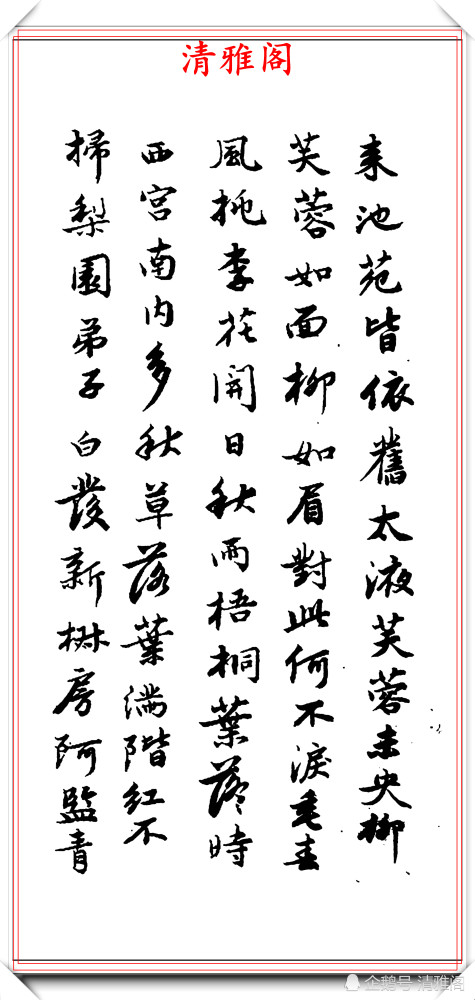 清雅阁
来池苑皆依舊太液芙蓉未央柳
芙蓉如面柳如眉對此何不淚垂春
風桃李花開日秋雨梧桐葉落時
西宫南内多秋草落葉滿階紅不
掃梨園弟子白發新椒房阿監青
企鹅号 清雅阁